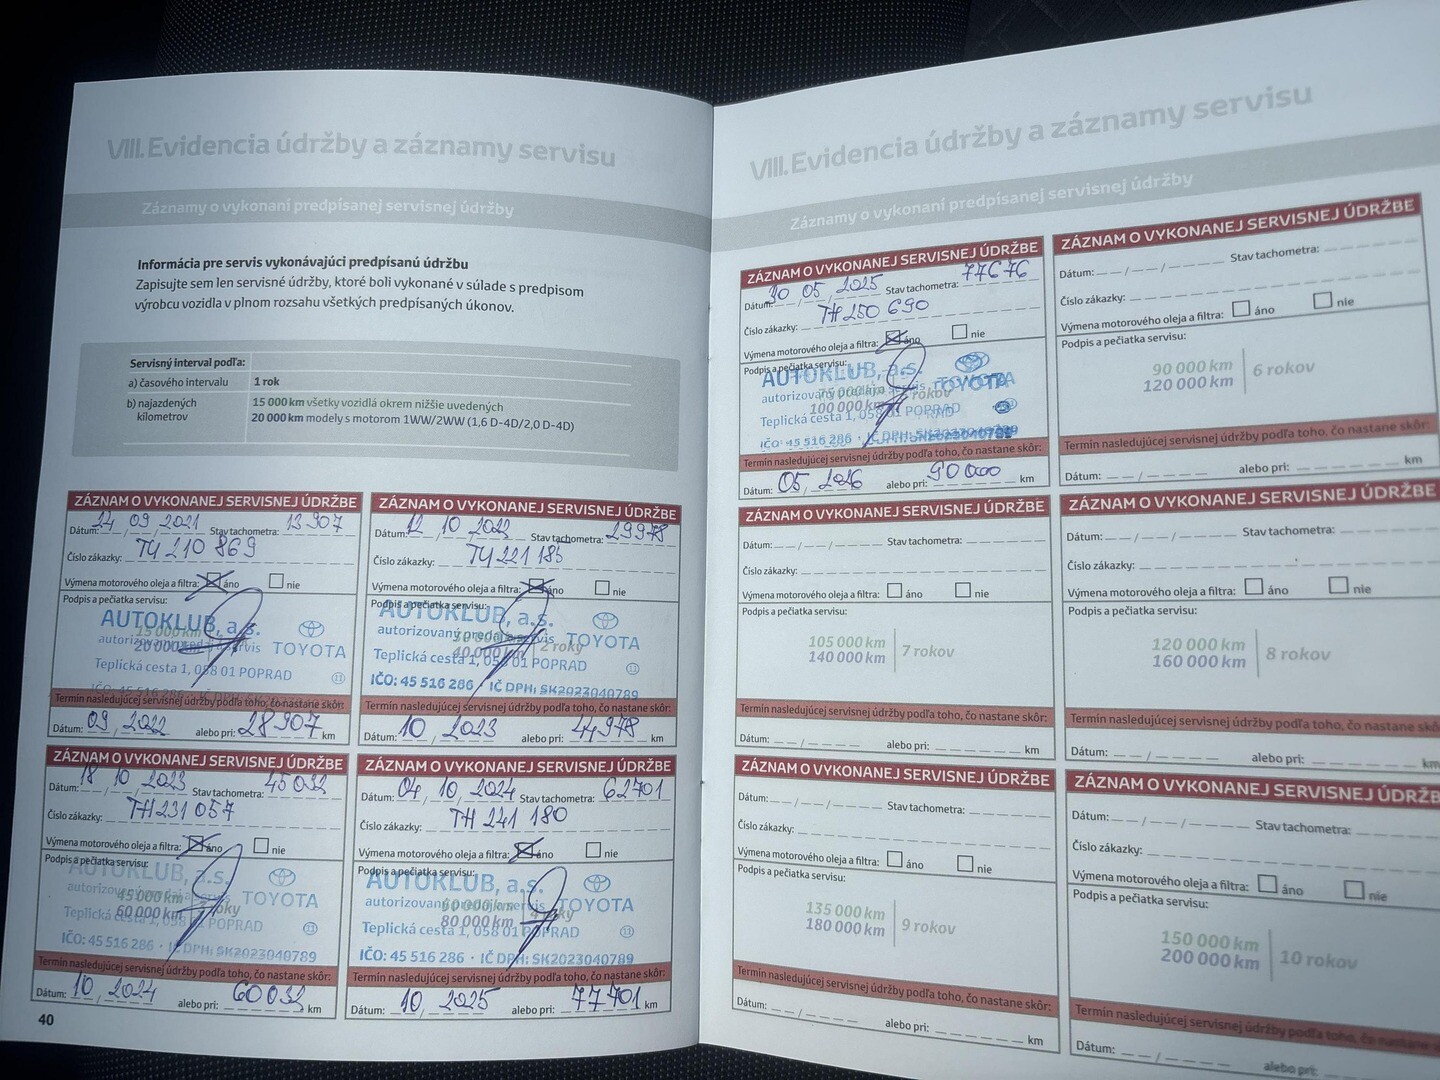 VIII. Evidencia údržby a záznamy servisu
Záznamy o vykonaní predpísanej servisnej údržby
Informácia pre servis vykonávajúci predpísanú údržbu
Zapisujte sem len servisné údržby, ktoré boli vykonané v súlade s predpisom
výrobcu vozidla v plnom rozsahu všetkých predpísaných úkonov.
Servisný interval podľa:
a) časového intervalu 1 rok
b) najazdených kilometrov 15 000 km všetky vozidlá okrem nižšie uvedených
20 000 km modely s motorom 1WW/2WW (1,6 D-4D/2,0 D-4D)
ZÁZNAM O VYKONANEJ SERVISNEJ ÚDRŽBE
Dátum: 24 09 2021 Stav tachometra: 13 907
Číslo zákazky: TH 210 869
Výmena motorového oleja a filtra: áno nie
Podpis a pečiatka servisu:
AUTOKLUB, a.s.
autorizovaný predaj a servis TOYOTA
15 000 km
20 000 km
Teplická cesta 1, 058 01 POPRAD 13
IČO: 45 516 286 · IČ DPH: SK2023040789
Termín nasledujúcej servisnej údržby podľa toho, čo nastane skôr:
Dátum: 09 2022 alebo pri: 28 907 km
ZÁZNAM O VYKONANEJ SERVISNEJ ÚDRŽBE
Dátum: 12 10 2022 Stav tachometra: 29978
Číslo zákazky: TH 221 185
Výmena motorového oleja a filtra: áno nie
Podpis a pečiatka servisu:
AUTOKLUB, a.s.
autorizovaný predaj a servis TOYOTA
30 000 km
40 000 km 2 roky
Teplická cesta 1, 058 01 POPRAD 13
IČO: 45 516 286 · IČ DPH: SK2023040789
Termín nasledujúcej servisnej údržby podľa toho, čo nastane skôr:
Dátum: 10 2023 alebo pri: 44 978 km
ZÁZNAM O VYKONANEJ SERVISNEJ ÚDRŽBE
Dátum: 18 10 2023 Stav tachometra: 45 032
Číslo zákazky: TH 231 057
Výmena motorového oleja a filtra: áno nie
Podpis a pečiatka servisu:
AUTOKLUB, a.s.
autorizovaný predaj a servis TOYOTA
45 000 km
60 000 km roky
Teplická cesta 1, 058 01 POPRAD 13
IČO: 45 516 286 · IČ DPH: SK2023040789
Termín nasledujúcej servisnej údržby podľa toho, čo nastane skôr:
Dátum: 10 2024 alebo pri: 60 032 km
ZÁZNAM O VYKONANEJ SERVISNEJ ÚDRŽBE
Dátum: 04 10 2024 Stav tachometra: 62701
Číslo zákazky: TH 241 180
Výmena motorového oleja a filtra: áno nie
Podpis a pečiatka servisu:
AUTOKLUB, a.s.
autorizovaný predaj a servis TOYOTA
60 000 km
80 000 km 4 roky
Teplická cesta 1, 058 01 POPRAD 13
IČO: 45 516 286 · IČ DPH: SK2023040789
Termín nasledujúcej servisnej údržby podľa toho, čo nastane skôr:
Dátum: 10 2025 alebo pri: 77 701 km
40
VIII. Evidencia údržby a záznamy servisu
Záznamy o vykonaní predpísanej servisnej údržby
ZÁZNAM O VYKONANEJ SERVISNEJ ÚDRŽBE
Dátum: 30 05 2025 Stav tachometra: 77676
Číslo zákazky: TH 250 690
Výmena motorového oleja a filtra: áno nie
Podpis a pečiatka servisu:
AUTOKLUB, a.s.
autorizovaný predaj a servis TOYOTA
75 000 km
100 000 km rokov
Teplická cesta 1, 058 01 POPRAD
IČO: 45 516 286 · IČ DPH: SK2023040789
Termín nasledujúcej servisnej údržby podľa toho, čo nastane skôr:
Dátum: 05 2026 alebo pri: 90 000 km
ZÁZNAM O VYKONANEJ SERVISNEJ ÚDRŽBE
Dátum: Stav tachometra:
Číslo zákazky:
Výmena motorového oleja a filtra: áno nie
Podpis a pečiatka servisu:
90 000 km
120 000 km 6 rokov
Termín nasledujúcej servisnej údržby podľa toho, čo nastane skôr:
Dátum: alebo pri: km
ZÁZNAM O VYKONANEJ SERVISNEJ ÚDRŽBE
Dátum: Stav tachometra:
Číslo zákazky:
Výmena motorového oleja a filtra: áno nie
Podpis a pečiatka servisu:
105 000 km
140 000 km 7 rokov
Termín nasledujúcej servisnej údržby podľa toho, čo nastane skôr:
Dátum: alebo pri: km
ZÁZNAM O VYKONANEJ SERVISNEJ ÚDRŽBE
Dátum: Stav tachometra:
Číslo zákazky:
Výmena motorového oleja a filtra: áno nie
Podpis a pečiatka servisu:
120 000 km
160 000 km 8 rokov
Termín nasledujúcej servisnej údržby podľa toho, čo nastane skôr:
Dátum: alebo pri: km
ZÁZNAM O VYKONANEJ SERVISNEJ ÚDRŽBE
Dátum: Stav tachometra:
Číslo zákazky:
Výmena motorového oleja a filtra: áno nie
Podpis a pečiatka servisu:
135 000 km
180 000 km 9 rokov
Termín nasledujúcej servisnej údržby podľa toho, čo nastane skôr:
Dátum: alebo pri: km
ZÁZNAM O VYKONANEJ SERVISNEJ ÚDRŽB
Dátum: Stav tachometra:
Číslo zákazky:
Výmena motorového oleja a filtra: áno nie
Podpis a pečiatka servisu:
150 000 km
200 000 km 10 rokov
Termín nasledujúcej servisnej údržby podľa toho, čo nastane
Dátum: alebo pri: